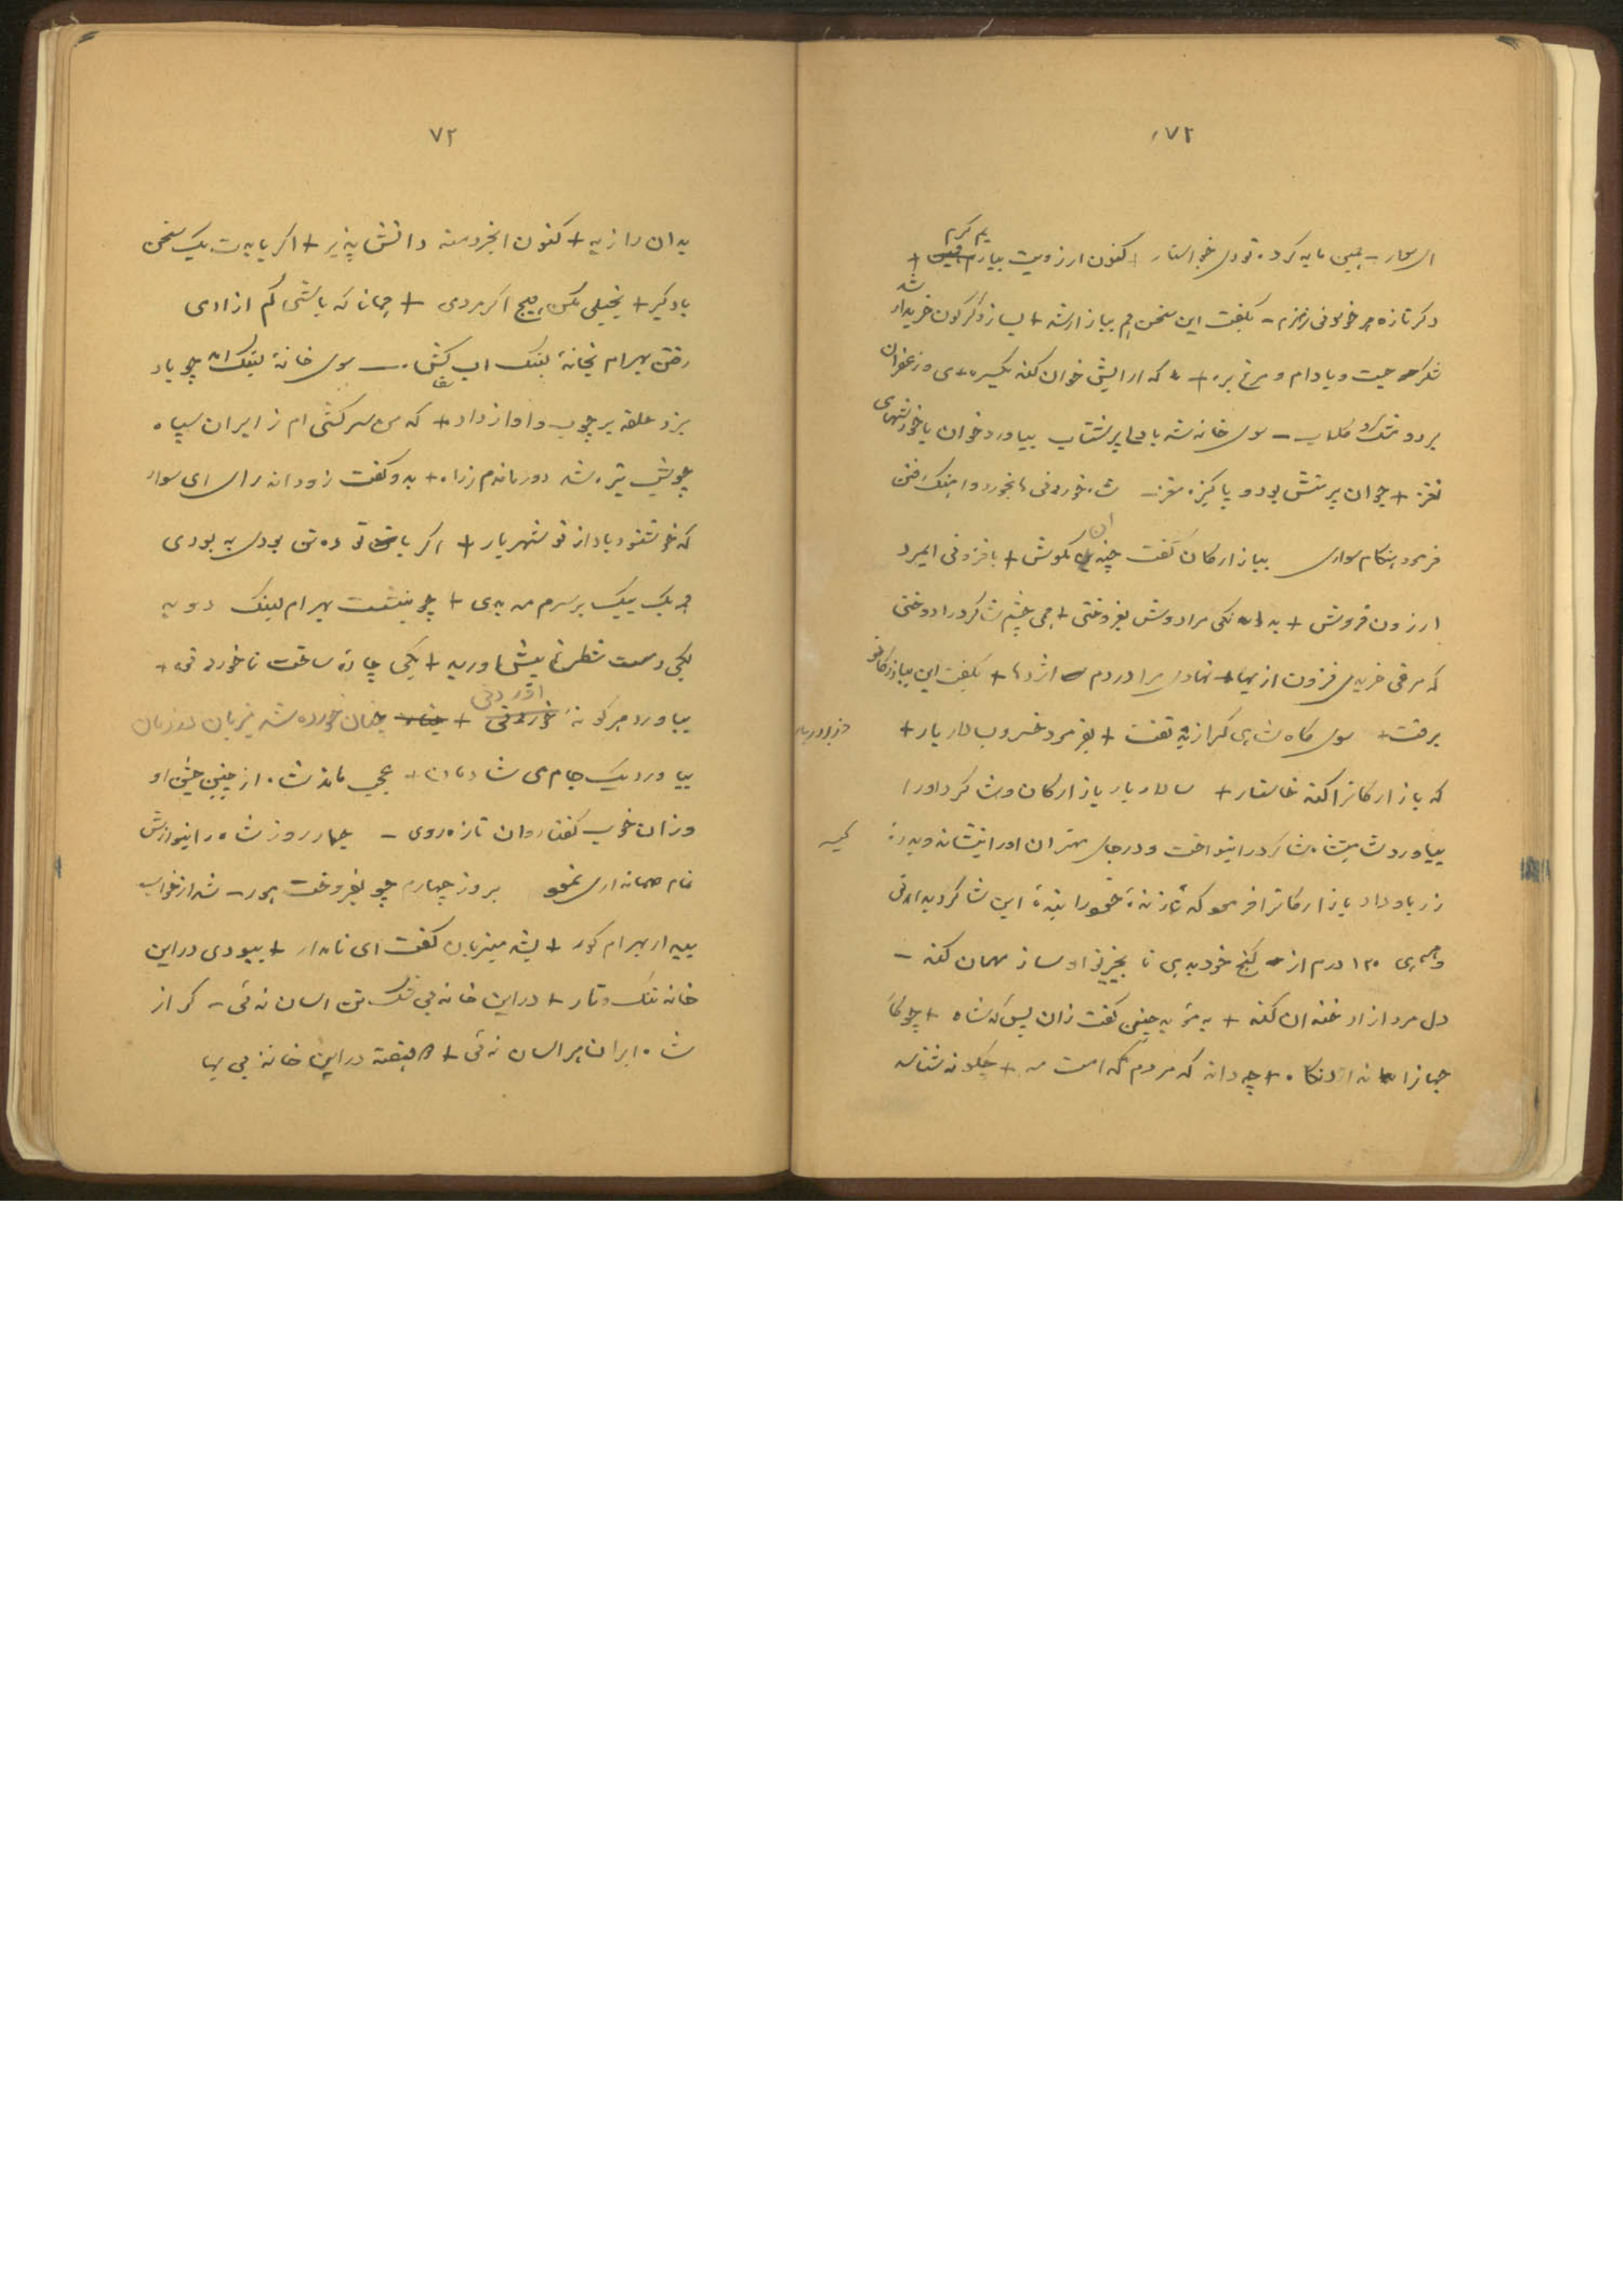 ۷۲
ال سوار - همین مایه کرده تو دل خواستار + کنون ارزویت بیارم
یم کرم
دکر تازه هر خوردنی - بکفت این سخن هم ببازار شد + بسازد کرکون خریدار
شد
شکر جست و بادام و مرغ بره + که ارایش خوان کند یکسره می و زعفران
برد و مشک و کلاب - سوی خانه شد با دل پر شتاب بیاورد خوان با خورشهای
نغز + جوان پر منش بود و پاکیزه مغز - شاه خوردنی ها بخورد و اهنک رفتن
فرمود هنکام سواری ببازارکان گفت چندان مکوش + بافزونی ایمرد
ارزون فروش + به دانکی مرا دوش بفروختی + همی چشم شاکرد را دوختی
که مرغی خریدی فزون از بها + نهادی مرا در دم اژدها + بکفت این ببازارکان و
برفت + سوی کاه شاهی کرازید تفت + بفرمود خسرو بسالار بار +
که بازارکانرا کند خاستار + سالار بار بازارکان و شاکرد اورا
بیاورد شاه شاکرد را بنواخت و در جای مهتران اورا نشاند و بدره
کیسه
زر باو داد بازارکانرا فرمود که تا زنده خود را بنده این شاکرد بدانی
و ماهی ۱۲۰ درم از کنج خود بدهی تا بخرنی او ساز مهمان کند -
دل مرد ازاد خندان کند + به موبد چنین کفت زان پس که شاه + چو کار
جهانرا ندارد نکاه + چه داند که مردم کدامست مه + چکونه شناسد
۷۳
بدان را ز به + کنون ایخردمند دانش پذیر + اکر بایدت یک سخن
یاد کیر + بخیلی مکن هیچ اکر مردی + همانا که باشی کم ازادی
رفتن بهرام بخانه لنبک اب کش - سوی خانه لنبک امد چو باد
بزد حلقه بر چوب و اواز داد + که من سرکشی ام ز ایران سپاه
چو شب تیره شد دور ماندم ز راه + بدو کفت زود اندر ای ای سوار
که خوشنود باد از تو شهریار + اکر با تو ده تن بودی به بودی
همه یک بیک بر سرم مه بدی + چو بنشست بهرام لنبک دوید
یکی دست شطرنج پیش اورید + یکی چاره ساخت تا خوردنی +
بیاورد هر کونه
اوردنی
+ چنان خورده شد میزبان در زمان
بیاورد یک جام می شادمان + عجب ماند شاه از چنین جشن او
وزان خوب کفتار وان تازه روی - چهار روز شاه را بنوازش
تمام مهمانداری نمود بروز چهارم چو بفروخت هور - شد از خواب
بیدار بهرام کور + بشد میزبان کفت ای نامدار + ببودی در این
خانه تنک و تار + در این خانه بی شک تن اسان نه ئی - کر از
شاه ایران هراسان نه ئی + دو هفته در این خانه بی بها